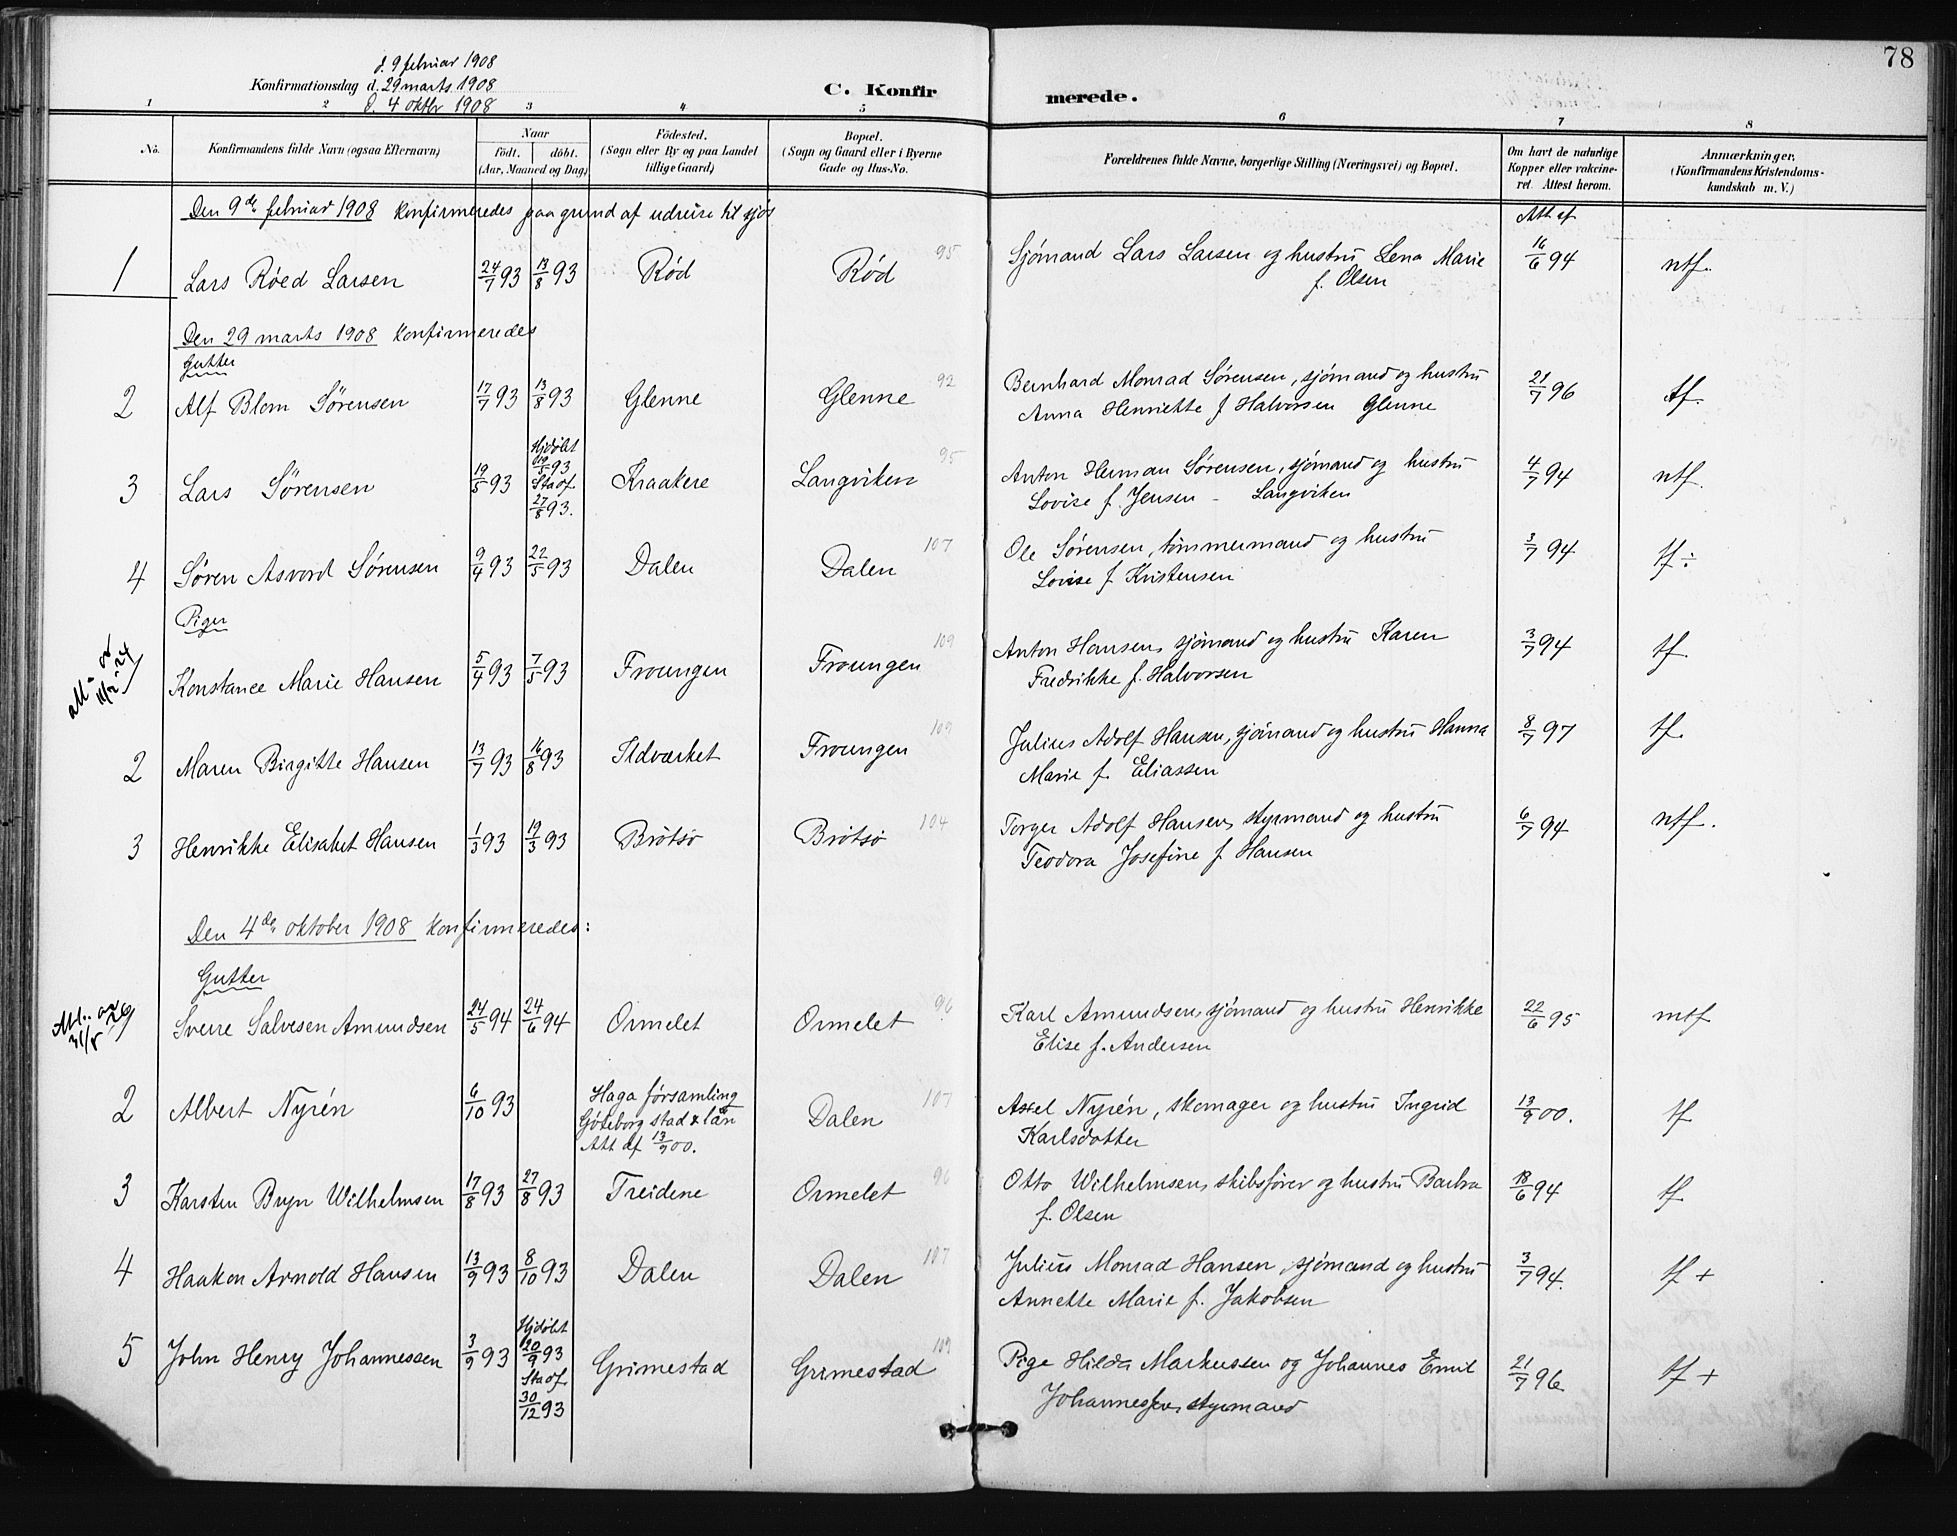 78
d. 9 februar 1908
Konfirmationsdag d. 29 marts 1908
d. 4 oktbr 1908
C. Konfirmerede.
1 2 3 4 5 6 7 8
No.
Konfirmandens fulde Navn (ogsaa Efternavn)
Naar
födt. döbt.
(Aar, Maaned og Dag)
Födested.
(Sogn eller By og paa Landet
tillige Gaard)
Bopæl.
(Sogn og Gaard eller i Byerne
Gade og Hus-No.
Forældrenes fulde Navne, borgerlige Stilling (Næringsvei) og Bopæl.
Om havt de naturlige
Kopper eller vakcine-
ret. Attest herom.
Anmærkninger.
(Konfirmandens Kristendoms-
kundskab m. V.)
Den 9de februar 1908 konfirmeredes paa grund af udreise til sjøs
Att af
1 Lars Røed Larsen 24/7 93 13/8 93 Rød Rød 95 Sjømand Lars Larsen og hustru Lena Marie 16/6 94 ntf.
f. Olsen
Den 29 marts 1908 konfirmeredes
Gutter
2 Alf Blom Sørensen 17/7 93 13/8 93 Glenne Glenne 92 Bernhard Monrad Sørensen, sjømand og hustru 21/7 96 tf.
Anna Henriette f Halvorsen Glenne
3 Lars Sørensen 19/5 93 Hjdøbt 19/5 93 Stadf. 27/8 93. Kraakere Langviken 95 Anton Herman Sørensen, sjømand og hustru 4/7 94 ntf.
Lovise f. Jensen - Langviken
4 Søren Asvord Sørensen 9/4 93 22/5 93 Dalen Dalen 107 Ole Sørensen, tømmermand og hustru 3/7 94 tf ÷
Lovise f Kristensen
Piger
att. 11/2 24
Konstance Marie Hansen 5/4 93 7/5 93 Froungen Froungen 109 Anton Hansen, sjømand og hustru Karen 3/7 94 tf.
Fredrikke f. Halvorsen
2 Maren Birgitte Hansen 13/7 93 16/8 93 Ildværket Froungen 109 Julius Adolf Hansen, sjømand og hustru Hanna 8/7 97 tf.
Marie f. Eliassen
3 Henrikke Elisabet Hansen 1/3 93 19/3 93 Brøtsø Brøtsø 104 Torger Adolf Hansen, styrmand og hustru 6/7 94 ntf.
Teodora Josefine f Hansen
Den 4de oktober 1908 konfirmeredes:
Gutter
Att. 31/5 29
Sverre Salvesen Amundsen 24/5 94 24/6 94 Ormelet Ormelet 96 Karl Amundsen, sjømand og hustru Henrikke 22/6 95 mtf
Elise f. Andersen
2 Albert Nyrén 6/10 93 Haga församling Göteborg stad & län Att af 13/9 00. Dalen 107 Axel Nyrén, skomager og hustru Ingrid 13/9 00. tf
Karlsdotter
3 Karsten Bryn Wilhelmsen 17/8 93 27/8 93 Treidene Ormelet 96 Otto Wilhelmsen, skibsfører og hustru Barbra 18/6 94 tf.
f. Olsen
4 Haakon Arnold Hansen 13/9 93 8/10 93 Dalen Dalen 107 Julius Monrad Hansen, sjømand og hustru 3/7 94. tf +
Annette Marie f. Jakobsen
5 John Henry Johannessen 3/9 93 Hjdøbt 20/9 93 Stadf. 30/12 93 Grimestad Grimestad 109 Pige Hilda Markussen og Johannes Emil 21/7 96. tf +
Johannessen, styrmand